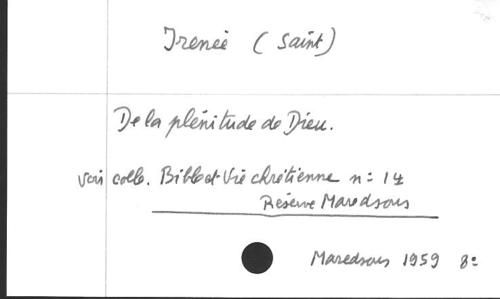 Irenée (Saint)
De la plénitude de Dieu.
voir coll. Bible et Vie chrétienne n: 14
Réserve Maredsous
Maredsous 1959 8º